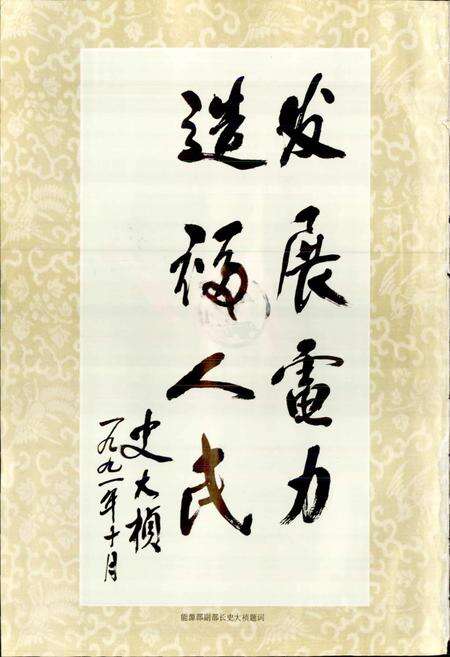 发展電力
造福人民
史大桢
一九九一年十月
能源部副部长史大桢题词